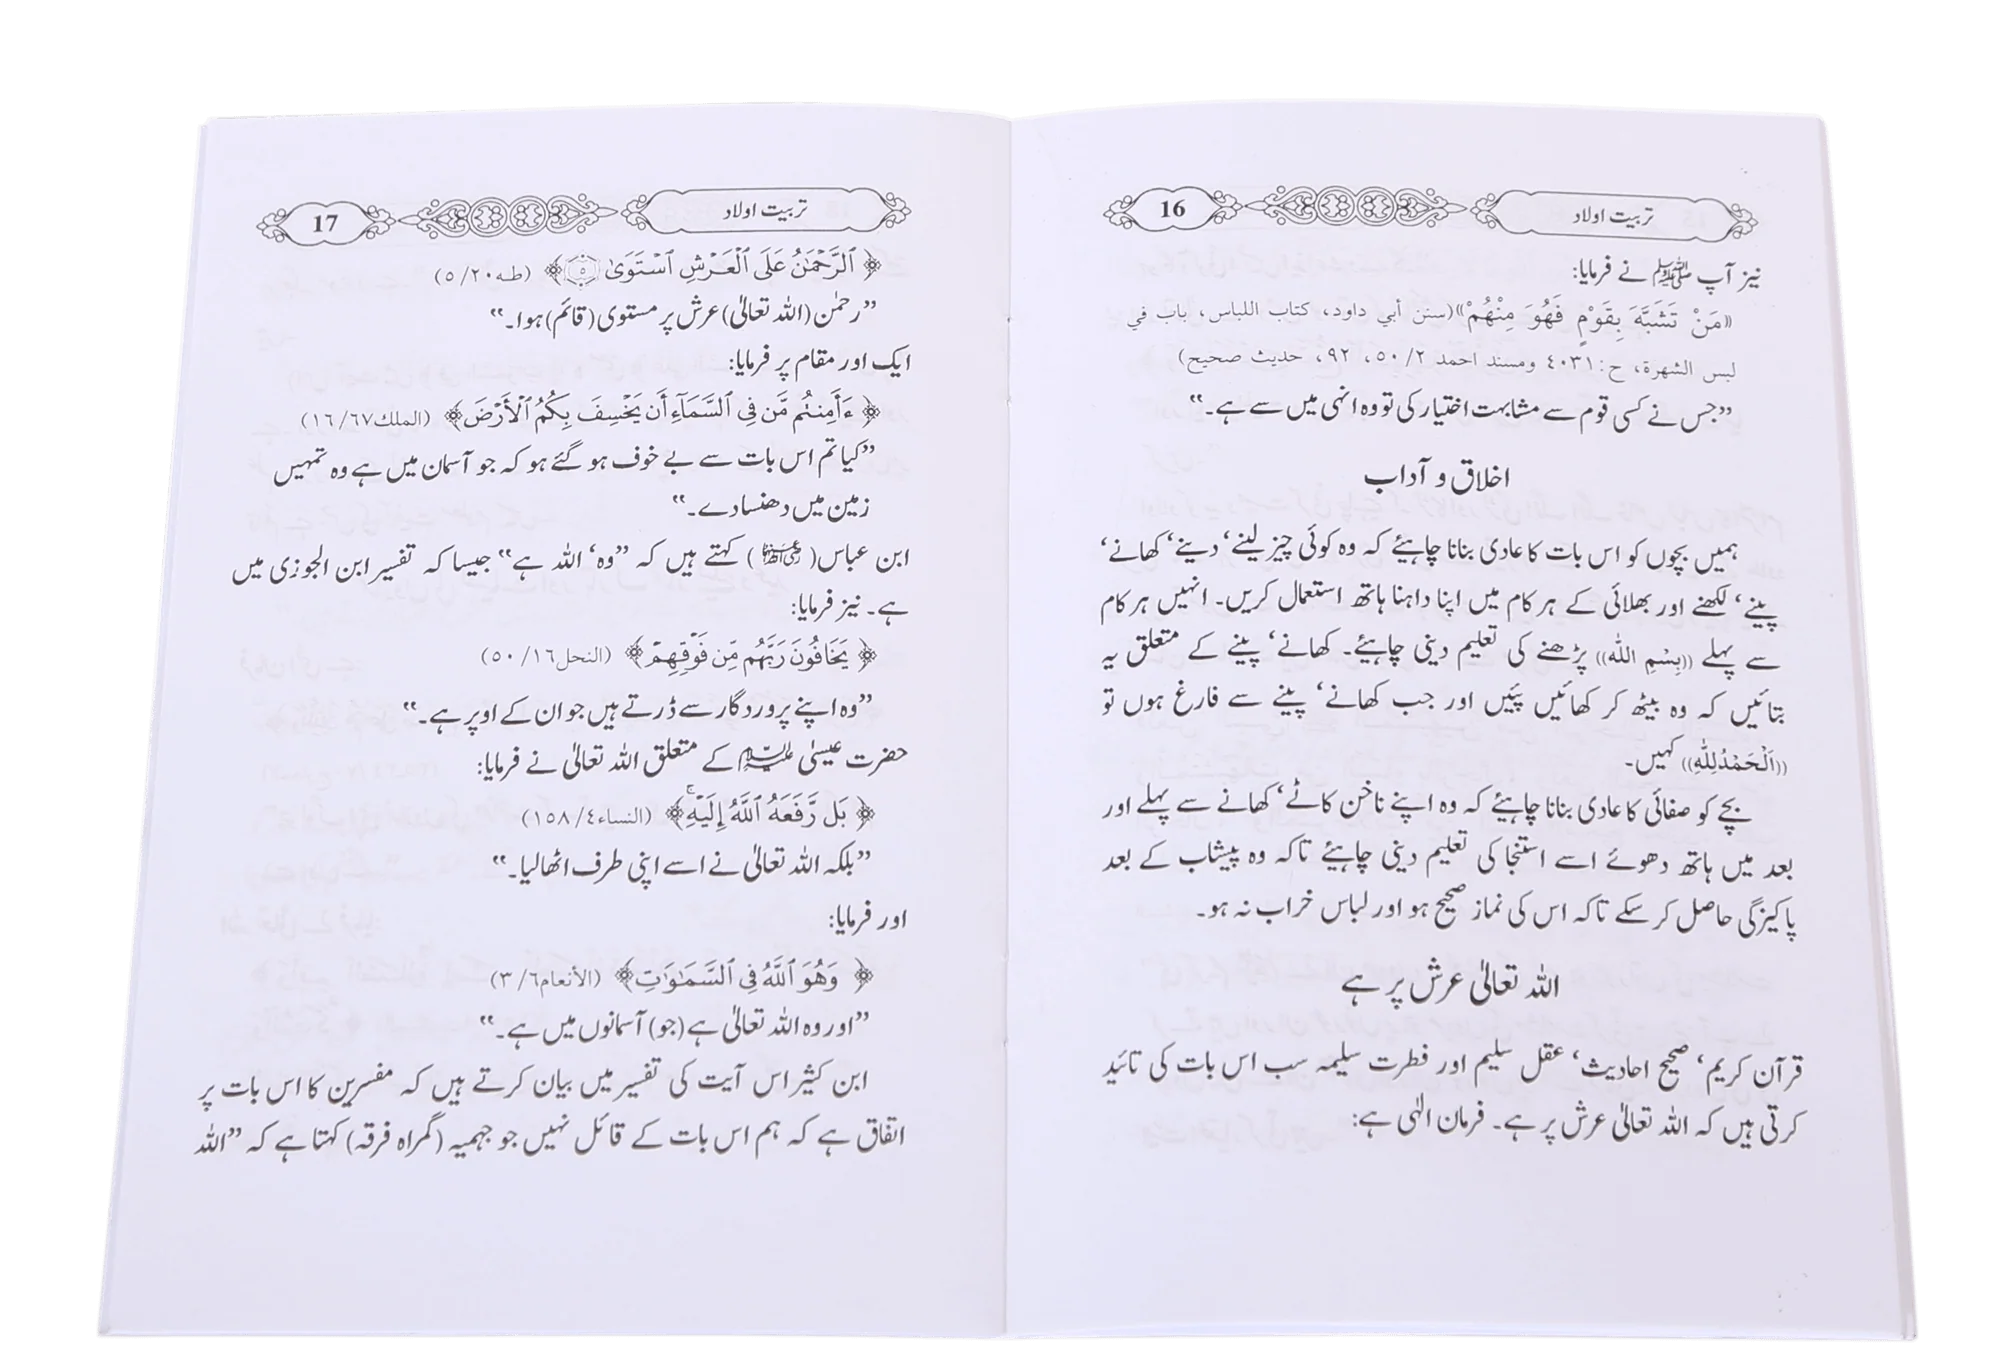 تربیت اولاد 16
نیز آپ ﷺ نے فرمایا:
«مَنْ تَشَبَّهَ بِقَوْمٍ فَهُوَ مِنْهُمْ» (سنن أبي داود، كتاب اللباس، باب في
لبس الشهرة، ح: ٤٠٣١ ومسند احمد ٢/ ٥٠، ٩٢، حديث صحيح)
”جس نے کسی قوم سے مشابہت اختیار کی تو وہ انہی میں سے ہے۔“
اخلاق و آداب
ہمیں بچوں کو اس بات کا عادی بنانا چاہیئے کہ وہ کوئی چیز لینے‘ دینے‘ کھانے‘
پینے‘ لکھنے اور بھلائی کے ہر کام میں اپنا داہنا ہاتھ استعمال کریں۔ انہیں ہر کام
سے پہلے ((بِسْمِ اللہ)) پڑھنے کی تعلیم دینی چاہیئے۔ کھانے‘ پینے کے متعلق یہ
بتائیں کہ وہ بیٹھ کر کھائیں پئیں اور جب کھانے‘ پینے سے فارغ ہوں تو
((اَلْحَمْدُلِلّٰہِ)) کہیں۔
بچے کو صفائی کا عادی بنانا چاہیئے کہ وہ اپنے ناخن کاٹے‘ کھانے سے پہلے اور
بعد میں ہاتھ دھوئے اسے استنجا کی تعلیم دینی چاہیئے تاکہ وہ پیشاب کے بعد
پاکیزگی حاصل کر سکے تاکہ اس کی نماز صحیح ہو اور لباس خراب نہ ہو۔
اللہ تعالیٰ عرش پر ہے
قرآن کریم‘ صحیح احادیث‘ عقل سلیم اور فطرت سلیمہ سب اس بات کی تائید
کرتی ہیں کہ اللہ تعالیٰ عرش پر ہے۔ فرمان الٰہی ہے:
تربیت اولاد 17
﴿ ٱلرَّحْمَـٰنُ عَلَى ٱلْعَرْشِ ٱسْتَوَىٰ ۝٥ ﴾ (طه٢٠/ ٥)
”رحمٰن (اللہ تعالیٰ) عرش پر مستوی (قائم) ہوا۔“
ایک اور مقام پر فرمایا:
﴿ ءَأَمِنتُم مَّن فِى ٱلسَّمَآءِ أَن يَخْسِفَ بِكُمُ ٱلْأَرْضَ ﴾ (الملك٦٧/ ١٦)
”کیا تم اس بات سے بے خوف ہو گئے ہو کہ جو آسمان میں ہے وہ تمہیں
زمین میں دھنسا دے۔“
ابن عباس ( رضی اللہ عنہما ) کہتے ہیں کہ ”وہ‘ اللہ ہے“ جیسا کہ تفسیر ابن الجوزی میں
ہے۔ نیز فرمایا:
﴿ يَخَافُونَ رَبَّهُم مِّن فَوْقِهِمْ ﴾ (النحل١٦/ ٥٠)
”وہ اپنے پروردگار سے ڈرتے ہیں جو ان کے اوپر ہے۔“
حضرت عیسیٰ علیہ السلام کے متعلق اللہ تعالیٰ نے فرمایا:
﴿ بَل رَّفَعَهُ ٱللَّهُ إِلَيْهِ ۚ ﴾ (النساء٤/ ١٥٨)
”بلکہ اللہ تعالیٰ نے اسے اپنی طرف اٹھا لیا۔“
اور فرمایا:
﴿ وَهُوَ ٱللَّهُ فِى ٱلسَّمَـٰوَٰتِ ﴾ (الأنعام٦/ ٣)
”اور وہ اللہ تعالیٰ ہے (جو) آسمانوں میں ہے۔“
ابن کثیر اس آیت کی تفسیر میں بیان کرتے ہیں کہ مفسرین کا اس بات پر
اتفاق ہے کہ ہم اس بات کے قائل نہیں جو جہمیہ (گمراہ فرقہ) کہتا ہے کہ ”اللہ